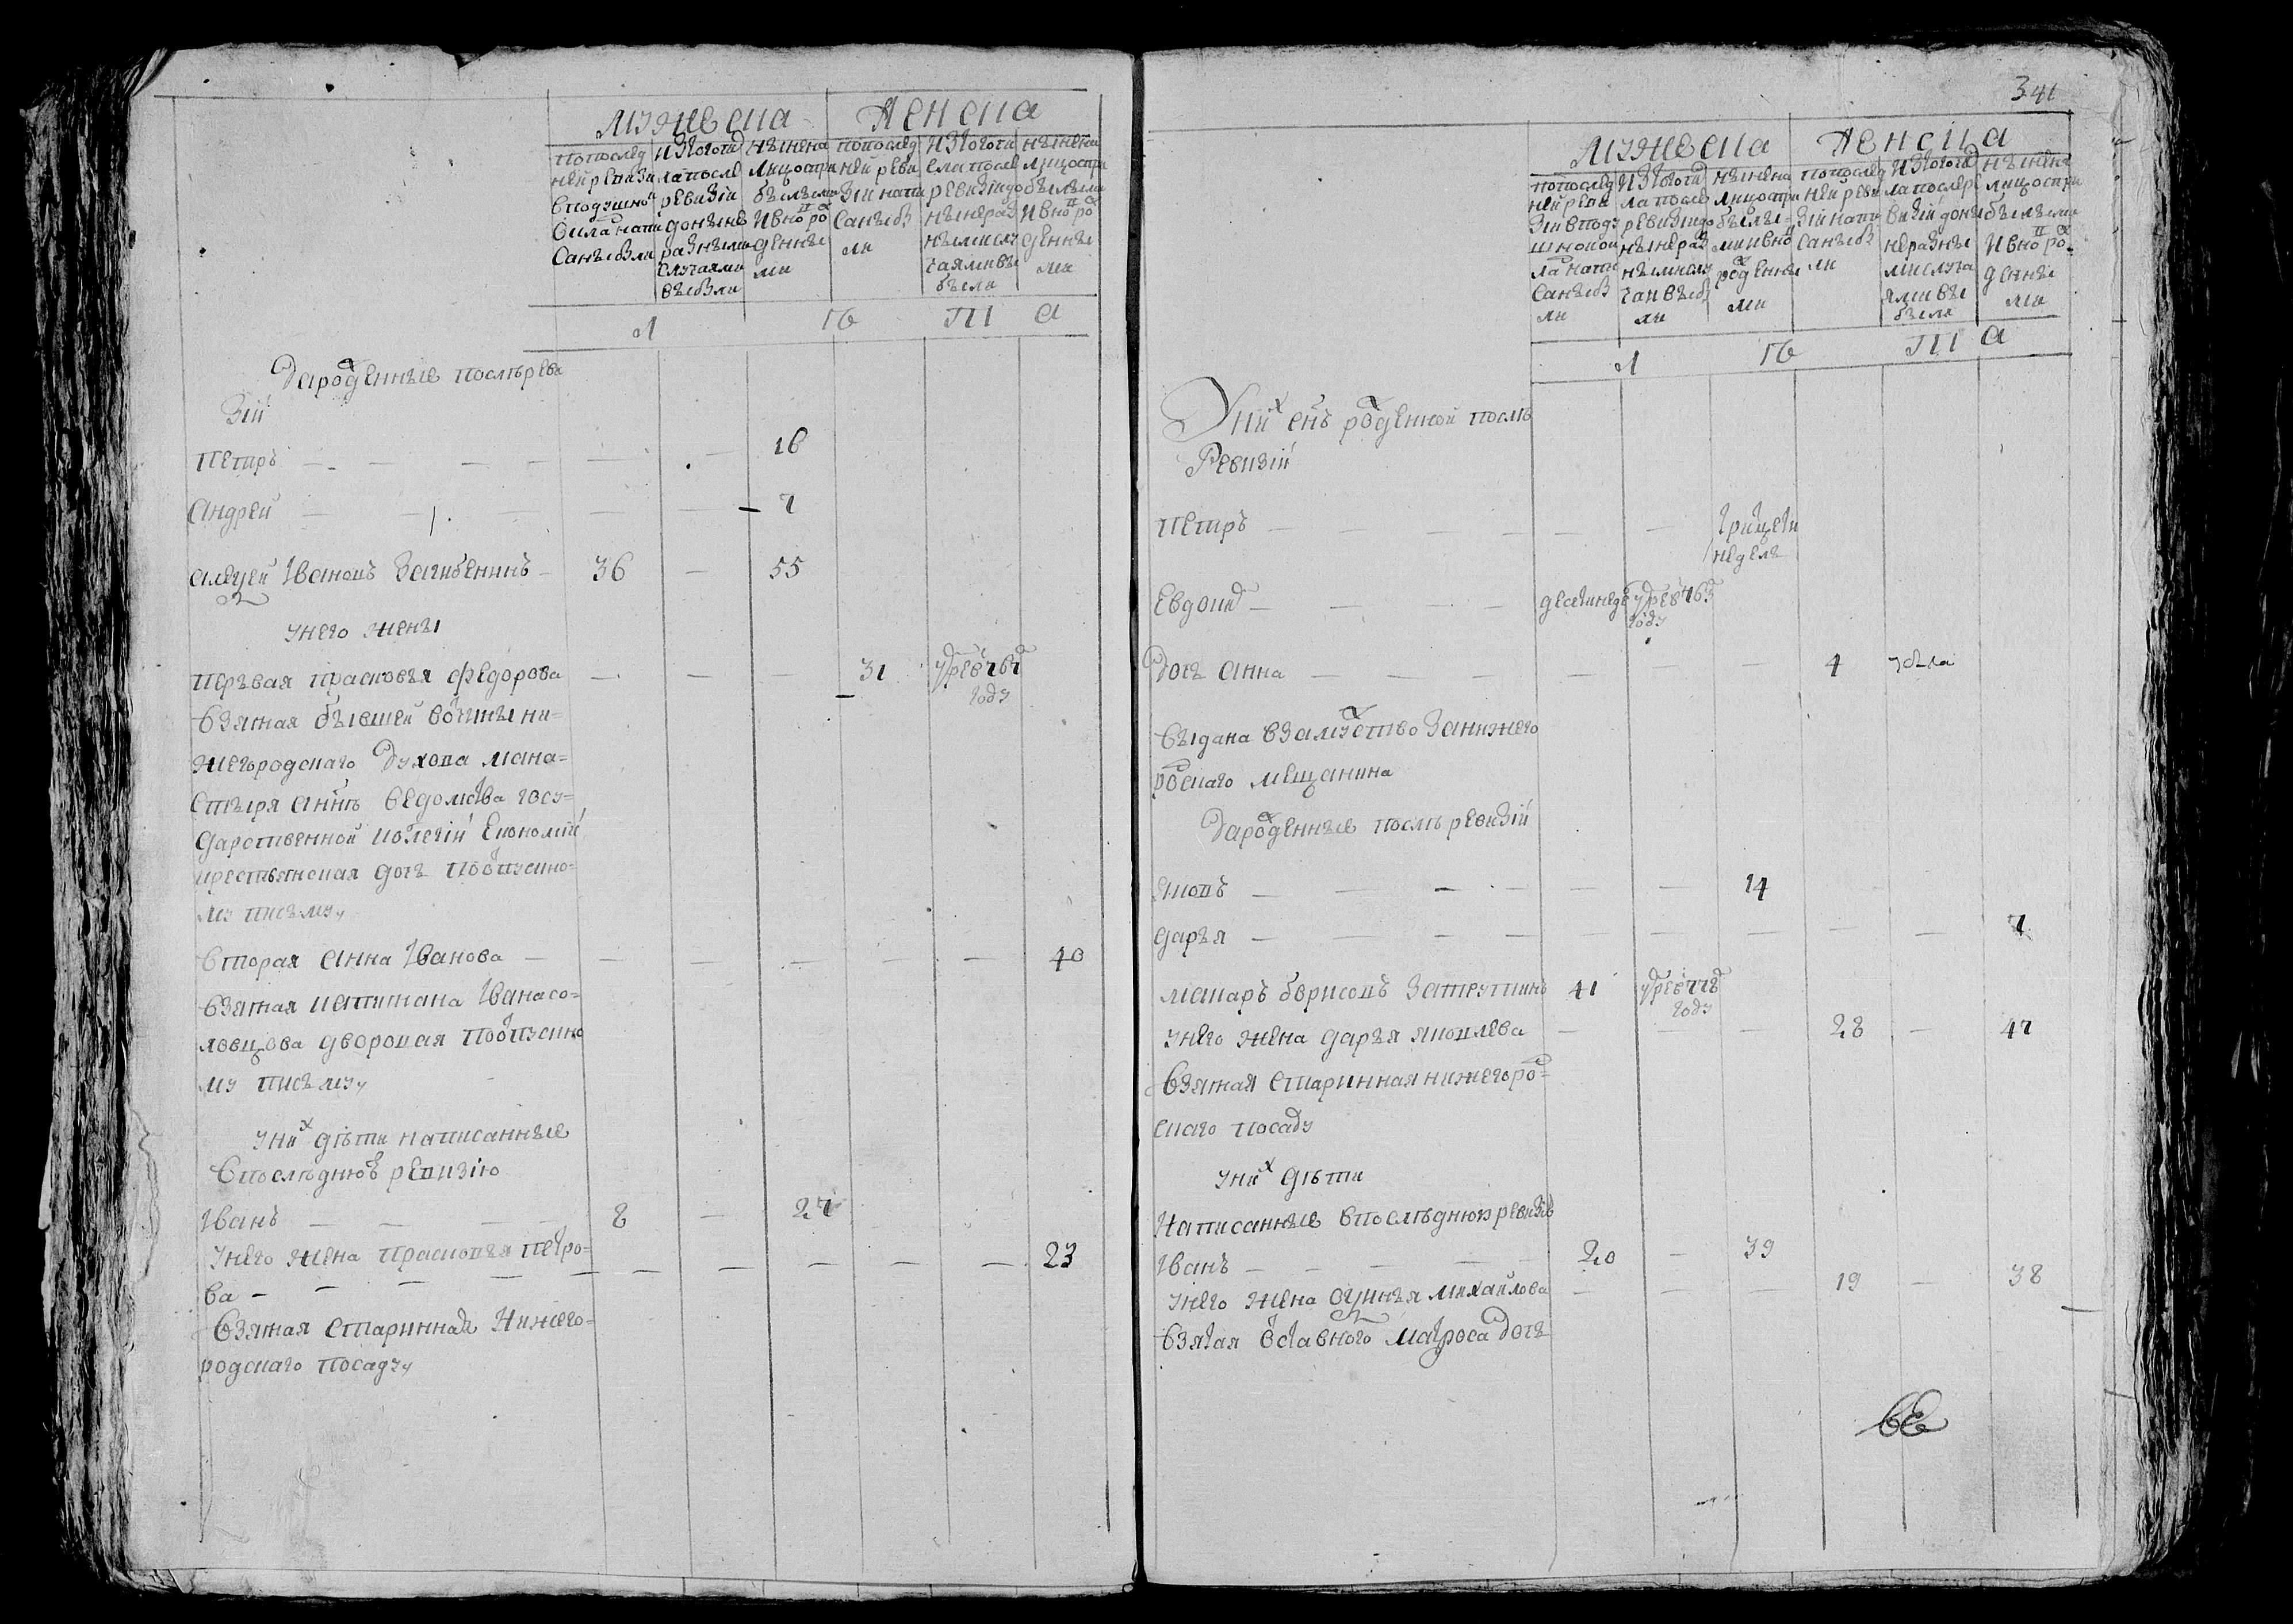 Мужеска Женска
попослед нейревизи вподушно окла напи санъ были
изътого числа после ревизіи донынѣ разными случаями выбыли
нынѣ налицо спри былыми ивновь рожденными
попослед ней реви зіи напи саны бы ли
изътого чи сла после ревизіи до нынѣ раз ными слу чаями вы были
нынѣ на лицо спри былыми ивновь ро жденны ми
Л Ѣ Т А
Дарожденные послѣ реви
зіи
Петръ — — — — — — 16
Андрей — — — — — 7
Алексей Iвановъ Загибенинъ — 36 — 55
унего жены
первая прасковья федорова — — — 31 умре в 767 году
взятая бывшей вотчины ни=
жегородскаго Духова мана=
стыря аннѣ ведомства госу=
дарственной колегіи Економіи
крестьянская дочь поотпускно=
му письму
вторая анна Iванова — — — — — — 40
взятая капитана Iвана со=
ловцова дворовая поотпускно
му письму
уних дѣти написанные
впослѣднюю ревизію
Iванъ — — — 8 — 27
унего жена прасковья петро=
ва — — — — — — — — — 23
взятая старинная Нижего=
родскаго посаду
341
Мужеска Женска
попослед ней реви зіи вподу шной ок лад напи саны бы ли
изътого чис ла после ревизіи до нынѣ раз ными слу чаи выбы ли
нынѣ на лицо спри былы= ми ивно рожденны ми
попослед ней реви зіи напи саны бы ли
изътого чис ла после ре визіи доны не разны ми случа ями вы были
нынѣ на лицо спри былыми ивновь ро жденны ми
Л Ѣ Т А
Уних сынъ рожденной послѣ
Ревизіи
Петръ — — — — — трицети неделъ
Евдоким — — — — десети недел умре в 763 году
Дочь анна — — — — — — 4 убыла
выдана взамужство занижего
родскаго мещанина
Дарожденные послѣ ревизіи
Яковъ — — — — — — 14
дарья — — — — — — — — — 7
макаръ борисовъ Затрутинъ 41 умре в 778 году
унего жена дарья яковлева — — — 28 — 47
взятая старинная нижегород=
скаго посаду
уних дѣти
Написанные впослѣднюю ревизію
Iванъ — — — — 20 — 39
унего жена аксинья михайлова — — — 19 — 38
взятая отставного матроса дочь